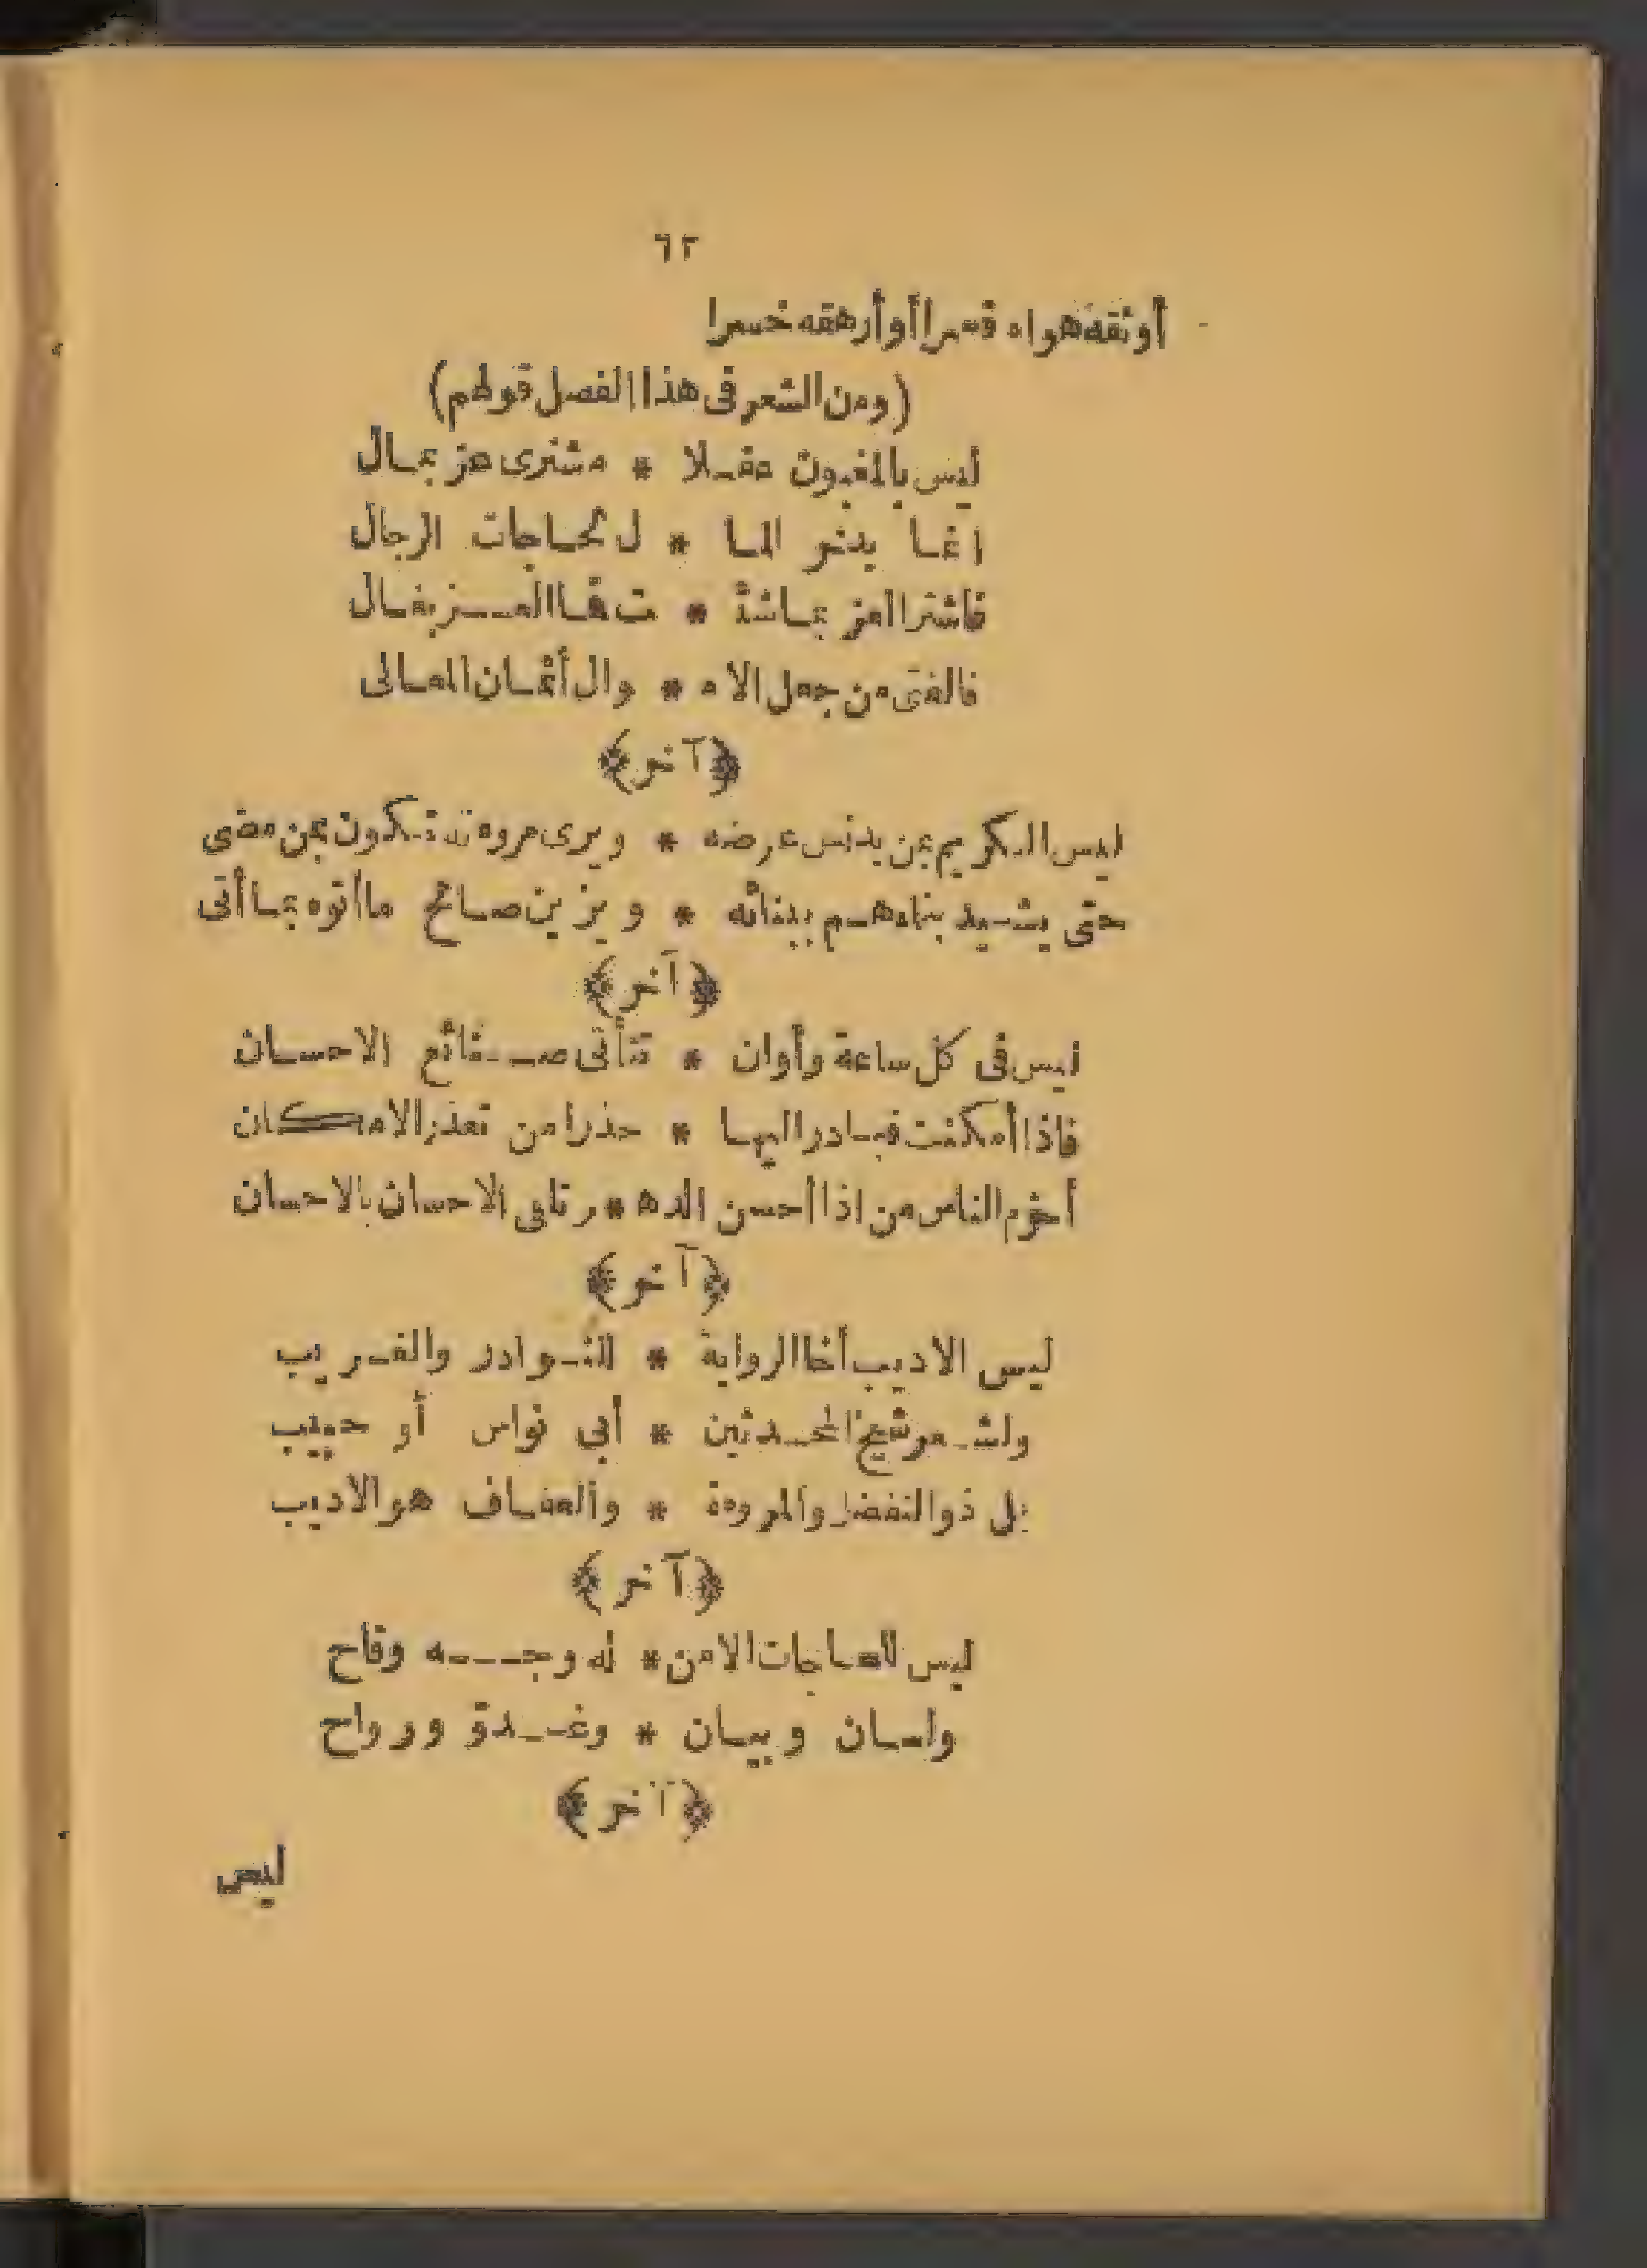 ٦٢
أوثقه هواه قسرا أو أرهقه خسرا
(ومن الشعر فى هذا الفصل قولهم)
ليس بالمغبون عقلا * مشترى عز بمال
انما يدخر الما * ل لحاجات الرجال
فاشتر العز بما شئـ * ت فما العز بغال
فالفتى من جعل الامـ * وال أثمان المعالى
﴿آخر﴾
ليس الكريم بمن يدنس عرضه * ويرى مروءته تكون بمن مضى
حتى يشيد بناءهم ببنائه * ويزين صالح ما أتوه بما أتى
﴿آخر﴾
ليس فى كل ساعة وأوان * تتأتى صنائع الاحسان
فاذا أمكنت فبادر اليها * حذرا من تعذر الامكان
أحزم الناس من اذا أحسن الدهـ * ر تلقى الاحسان بالاحسان
﴿آخر﴾
ليس الاديب أخا الرواية * للنوادر والغريب
ولشعر شيخ المحدثين * أبي نواس أو حبيب
بل ذو التفضل والمروءة * والعفاف هو الاديب
﴿آخر﴾
ليس للحاجات الا من * له وجه وقاح
ولسان وبيان * وغدوّ ورواح
﴿آخر﴾
ليس